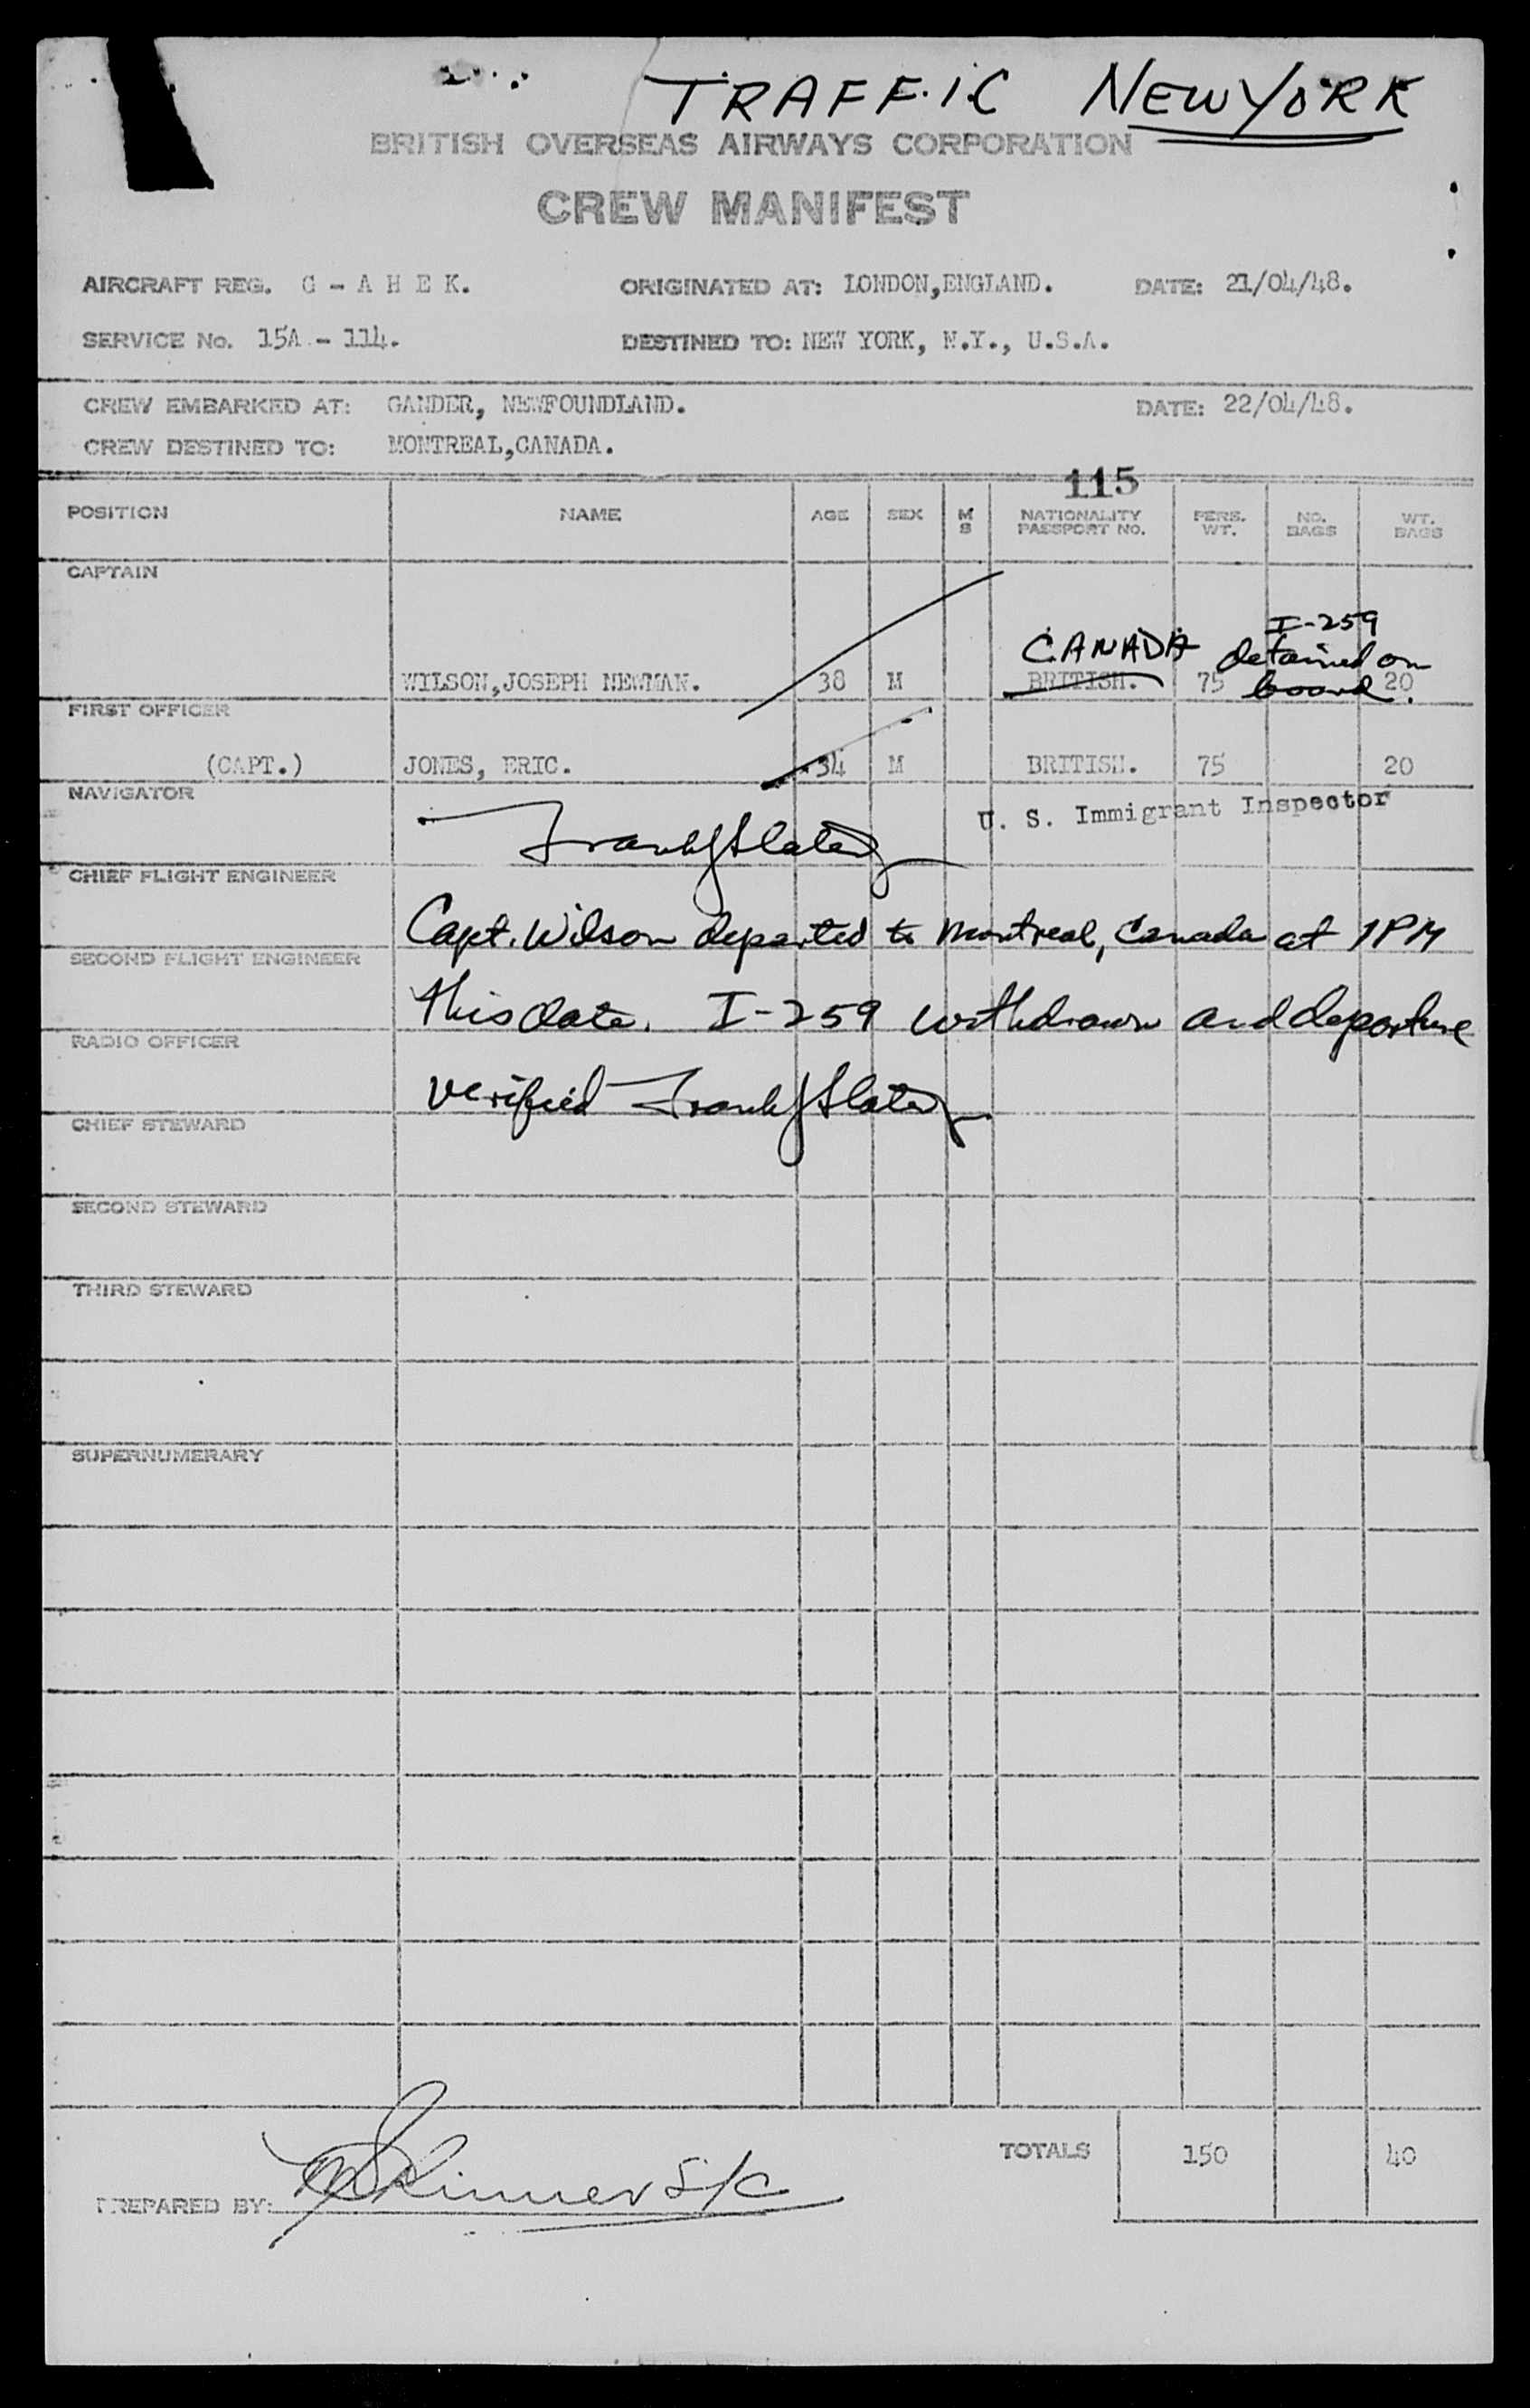 TRAFFIC NEW YORK
BRITISH OVERSEAS AIRWAYS CORPORATION
CREW MANIFEST
AIRCRAFT REG. G - A H E K. ORIGINATED AT: LONDON,ENGLAND. DATE: 21/04/48.
SERVICE No. 15A - 114. DESTINED TO: NEW YORK, N.Y., U.S.A.
CREW EMBARKED AT: GANDER, NEWFOUNDLAND. DATE: 22/04/48.
CREW DESTINED TO: MONTREAL,CANADA.
115
POSITION NAME AGE SEX M S NATIONALITY PASSPORT NO. PERS. WT. NO. BAGS WT. BAGS
CAPTAIN
I-259
CANADA detained on
WILSON,JOSEPH NEWMAN. 38 M BRITISH. 75 board. 20
FIRST OFFICER
(CAPT.) JONES, ERIC. 34 M BRITISH. 75 20
NAVIGATOR
Frank J Slater U. S. Immigrant Inspector
CHIEF FLIGHT ENGINEER
Capt. Wilson departed to Montreal, Canada at 1PM
SECOND FLIGHT ENGINEER
this date. I-259 withdrawn and departure
RADIO OFFICER
verified Frank J Slater
CHIEF STEWARD
SECOND STEWARD
THIRD STEWARD
SUPERNUMERARY
TOTALS 150 40
PREPARED BY: